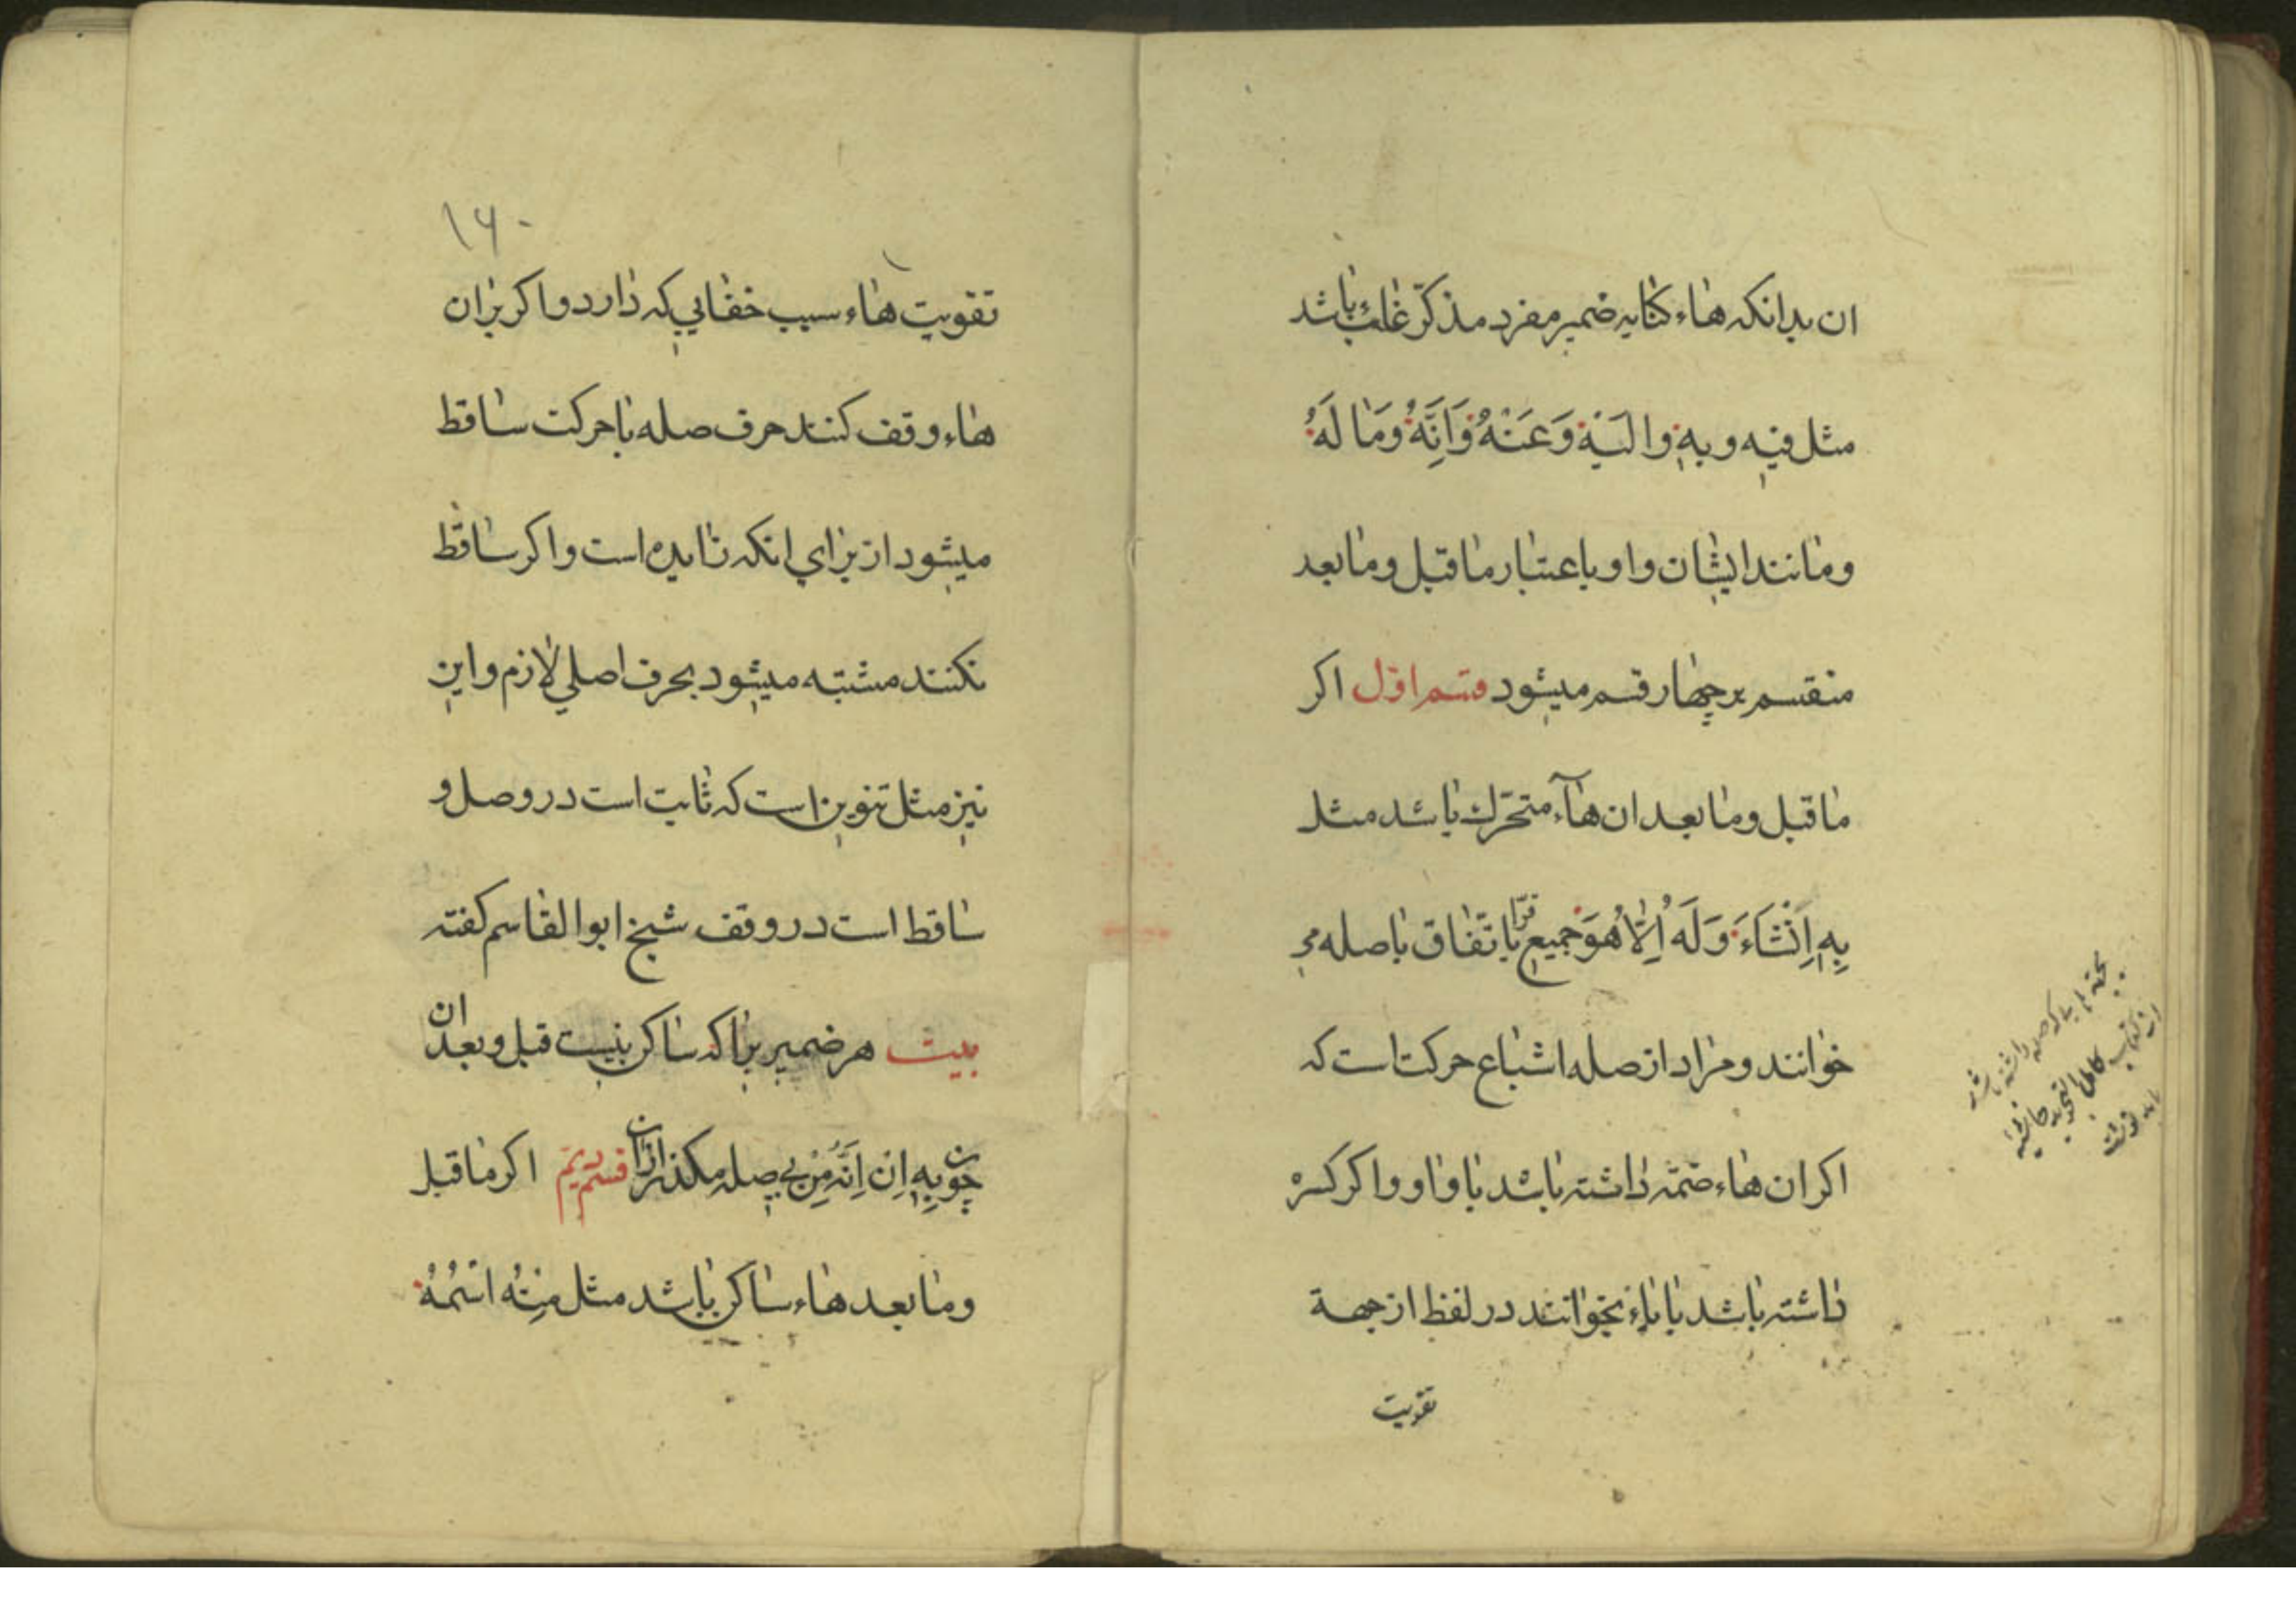 ان بدانكه هاء كنايه ضمير مفرد مذكّر غائب باشد
مثل فيه و به و اليه وَعَنْهُ وَاَنَّهُ وَمَا لَهُ
ومانند ايشان واو باعتبار ماقبل ومابعد
منقسم بر چهار قسم ميشود قسم اوّل اكر
ماقبل ومابعد ان هآء متحرّك باشد مثل
بِهِ اِنْشَاءَ وَلَهُ اِلّاٰهُوَ جميع قرّا باتّفاق باصله مى
خوانند ومراد از صله اشباع حركت است كه
اكر ان هاء ضمّه داشته باشد با واو و اكر كسره
داشته باشد با ياء بخوانند در لفظ از جهة
تقويت
١٦٠
تقويت هاء سبب خفايي كه دارد و اكر بران
هاء وقف كنند حرف صله با حركت ساقط
ميشود از براي انكه زايده است و اكر ساقط
نكنند مشتبه ميشود بحرف اصلي لازم و اين
نيز مثل تنوين است كه ثابت است در وصل و
ساقط است در وقف شيخ ابوالقاسم كفته
بيت هر ضمير يرا كه ساكن نيست قبل و بعد ان
چون بِهِ اِنْ اِنَّهُ مِنْ بي صله مكذر ازان قسم دويم اكر ماقبل
ومابعد هاء ساكن باشد مثل مِنْهُ اسْمُهُ